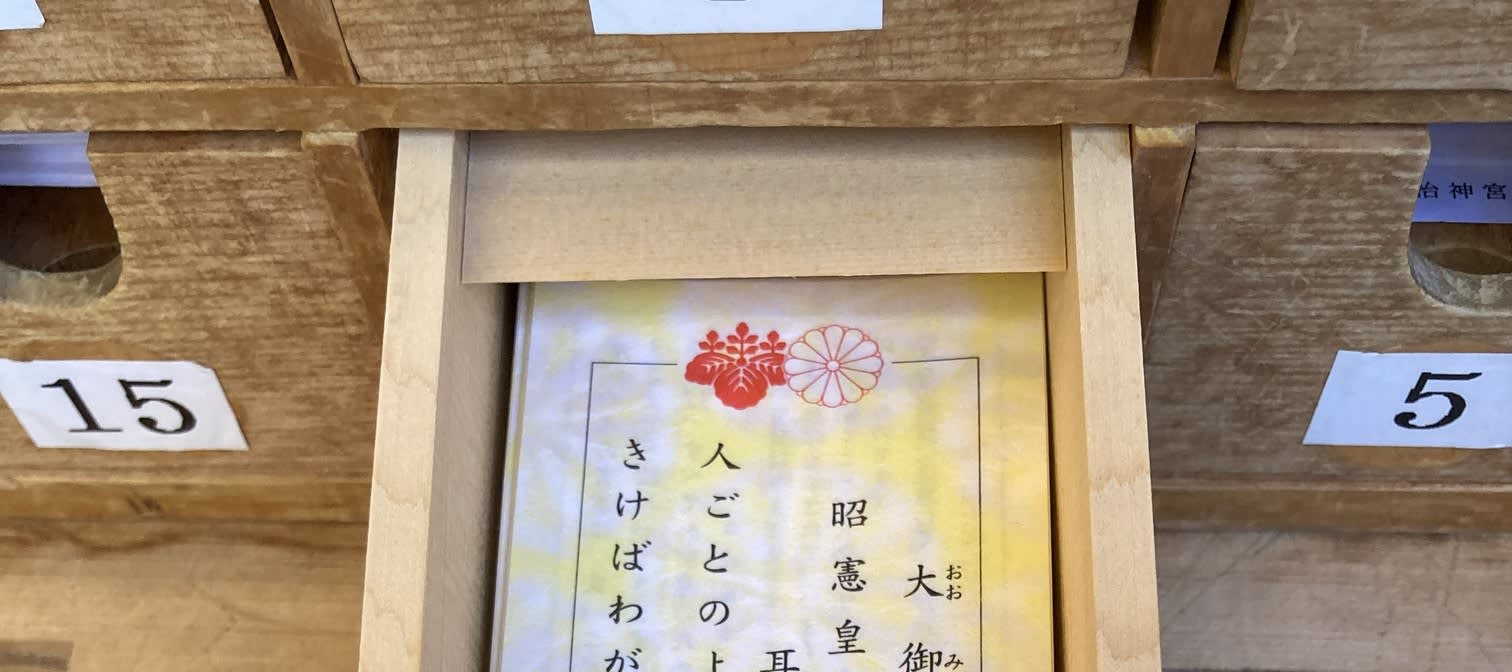 大御
おおみ
昭憲皇
耳
人ごとの
きけばわが
15
5
治神宮